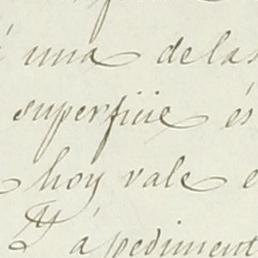 á una de las
superficie és
hoy vale e
Y á pediment